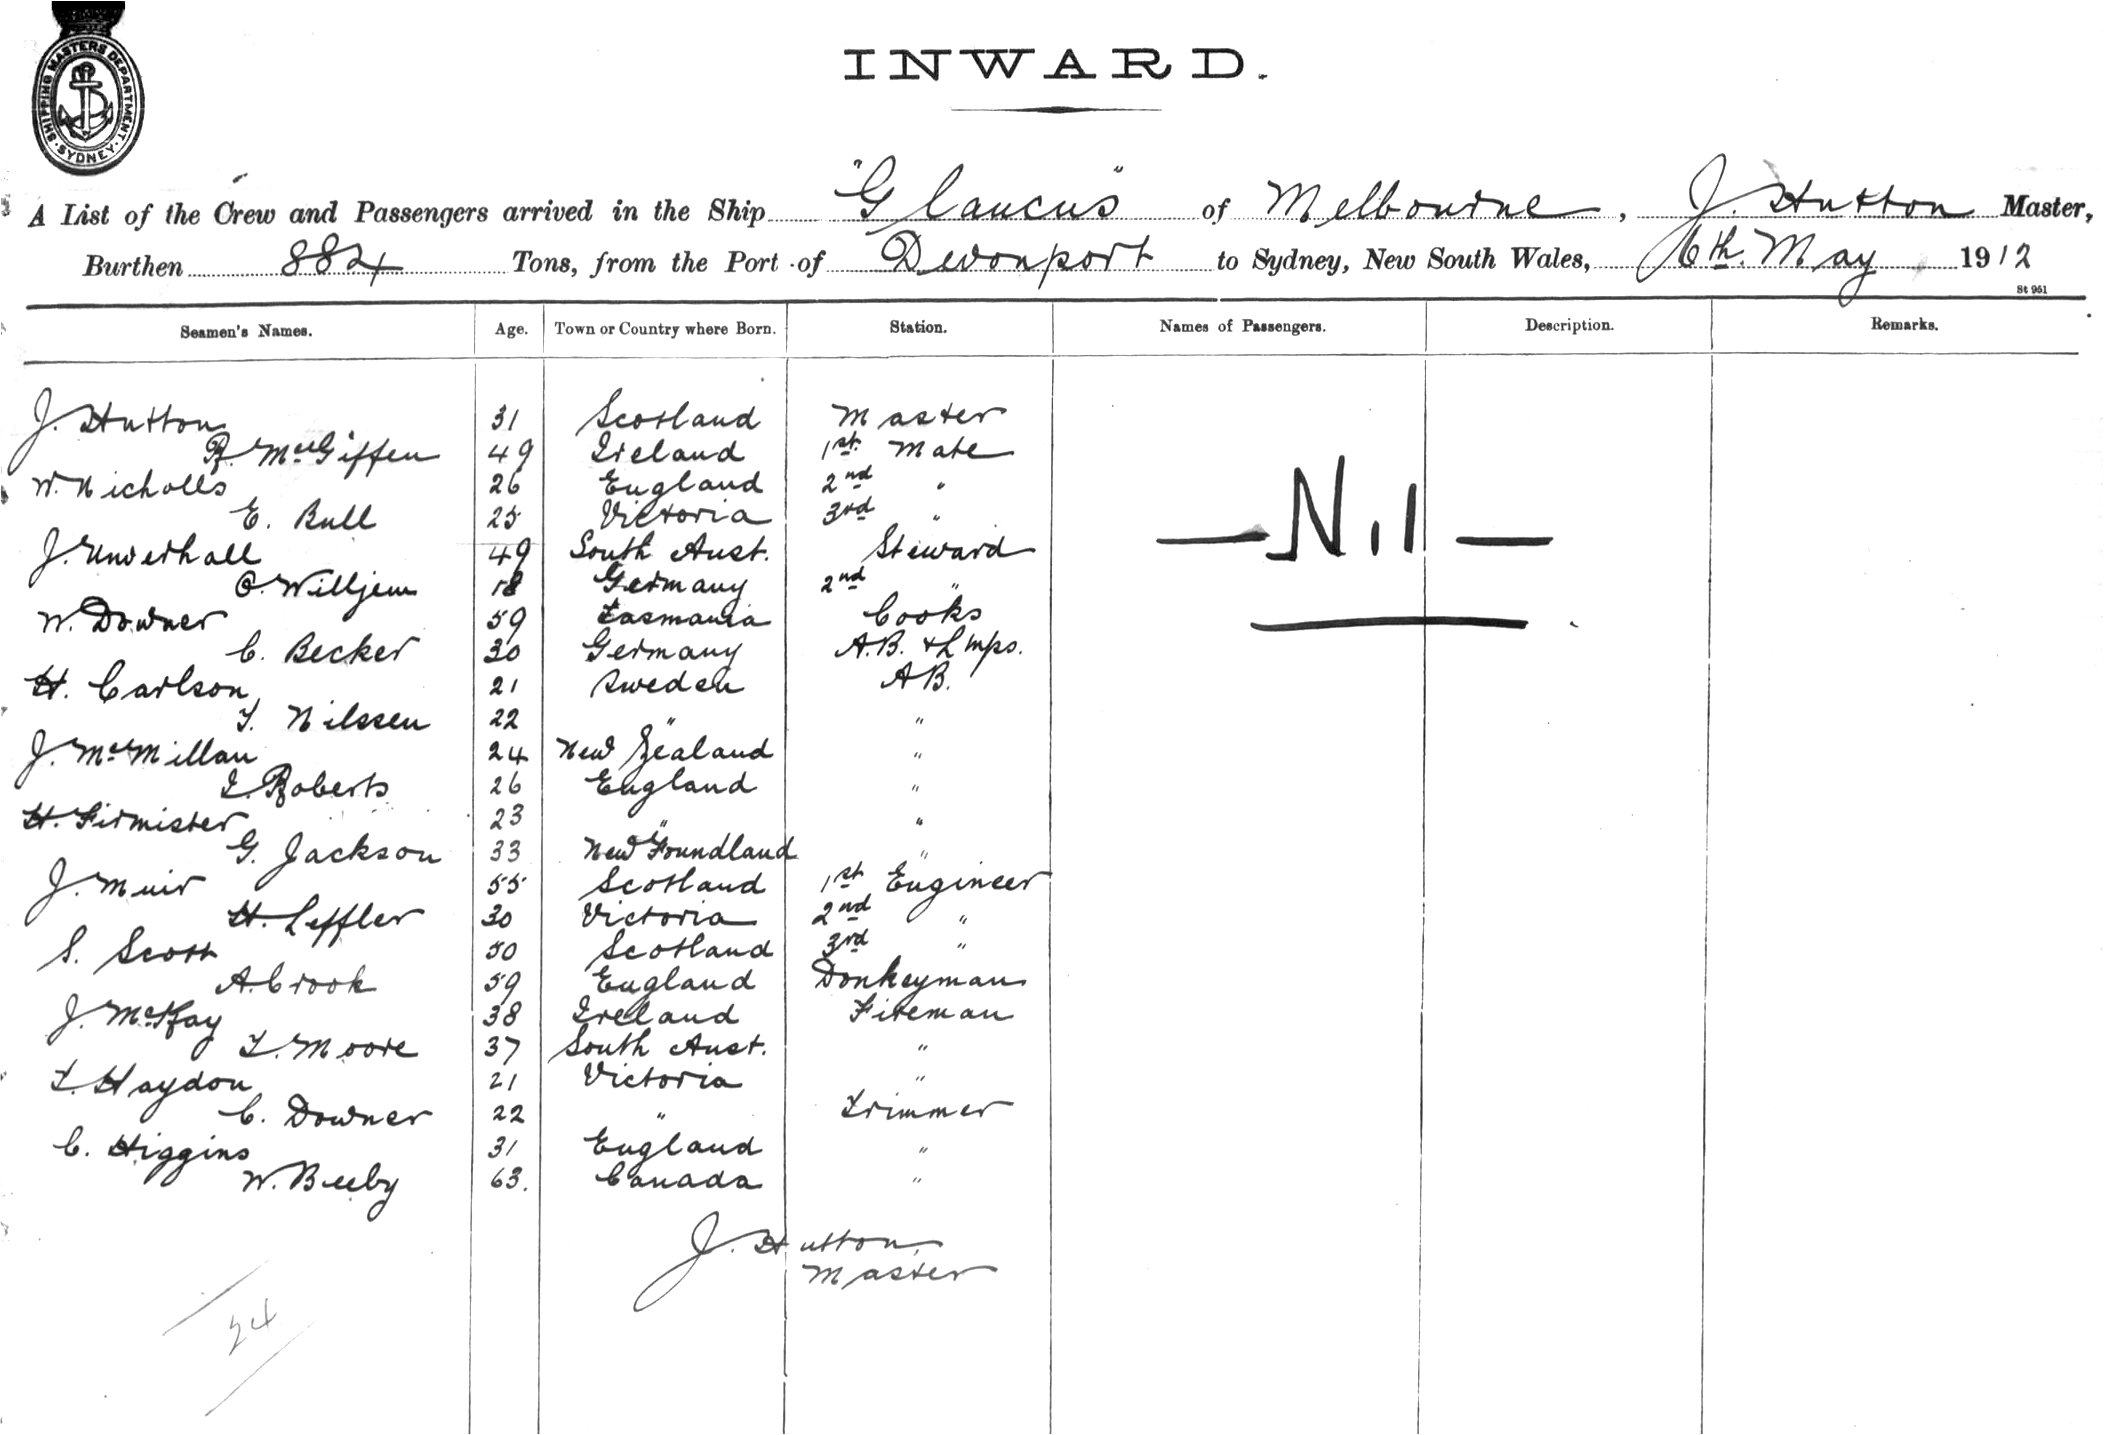 SHIPPING MASTERS DEPARTMENT. SYDNEY.
INWARD.
A List of the Crew and Passengers arrived in the Ship "Glaucus" of Melbourne, J. Hutton Master,
Burthen 884 Tons, from the Port of Devonport to Sydney, New South Wales, 6th. May 1912
St 951
Seamen's Names. Age. Town or Country where Born. Station. Names of Passengers. Description. Remarks.
J. Hutton 31 Scotland Master
R. McGiffen 49 Ireland 1st. Mate
W. Nicholls 26 England 2nd "
E. Bull 25 Victoria 3rd "
— Nil —
J. Underhall 49 South Aust. Steward
C. Willjem 18 Germany 2nd "
W. Downer 59 Tasmania Cooks
C. Becker 30 Germany A.B. & Lmps.
H. Carlson 21 Sweden AB.
T. Nilssen 22 " "
J. McMillan 24 New Zealand "
I. Roberts 26 England "
H. Firmister 23 " "
G. Jackson 33 New Foundland "
J. Muir 55 Scotland 1st Engineer
H. Leffler 30 Victoria 2nd "
S. Scott 50 Scotland 3rd "
A. Crook 59 England Donkeyman
J. McKay 38 Ireland Fireman
T. Moore 37 South Aust. "
T. Haydon 21 Victoria "
C. Downer 22 " Trimmer
C. Higgins 31 England "
W. Beeby 63. Canada "
J. Hutton
Master
24